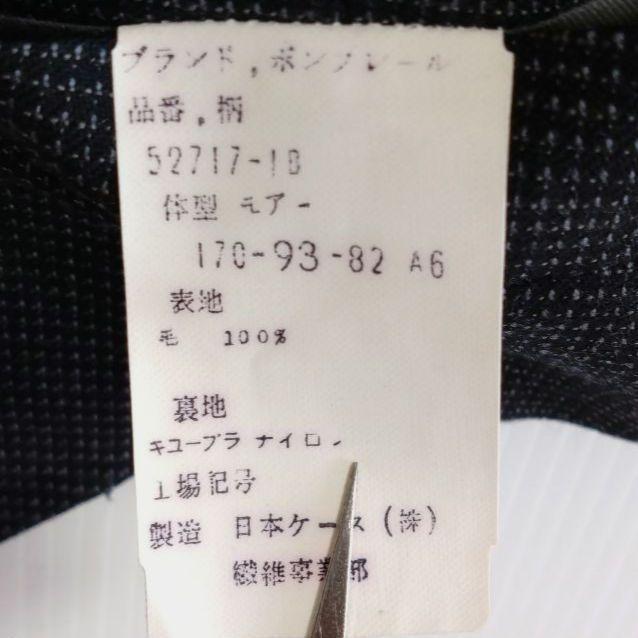 ブランド,ボンフレール
品番,柄
52717-1B
体型 モアー
170-93-82 A6
表地
毛 100%
裏地
キュープラ ナイロン
工場記号
製造 日本ケース(株)
繊維事業部